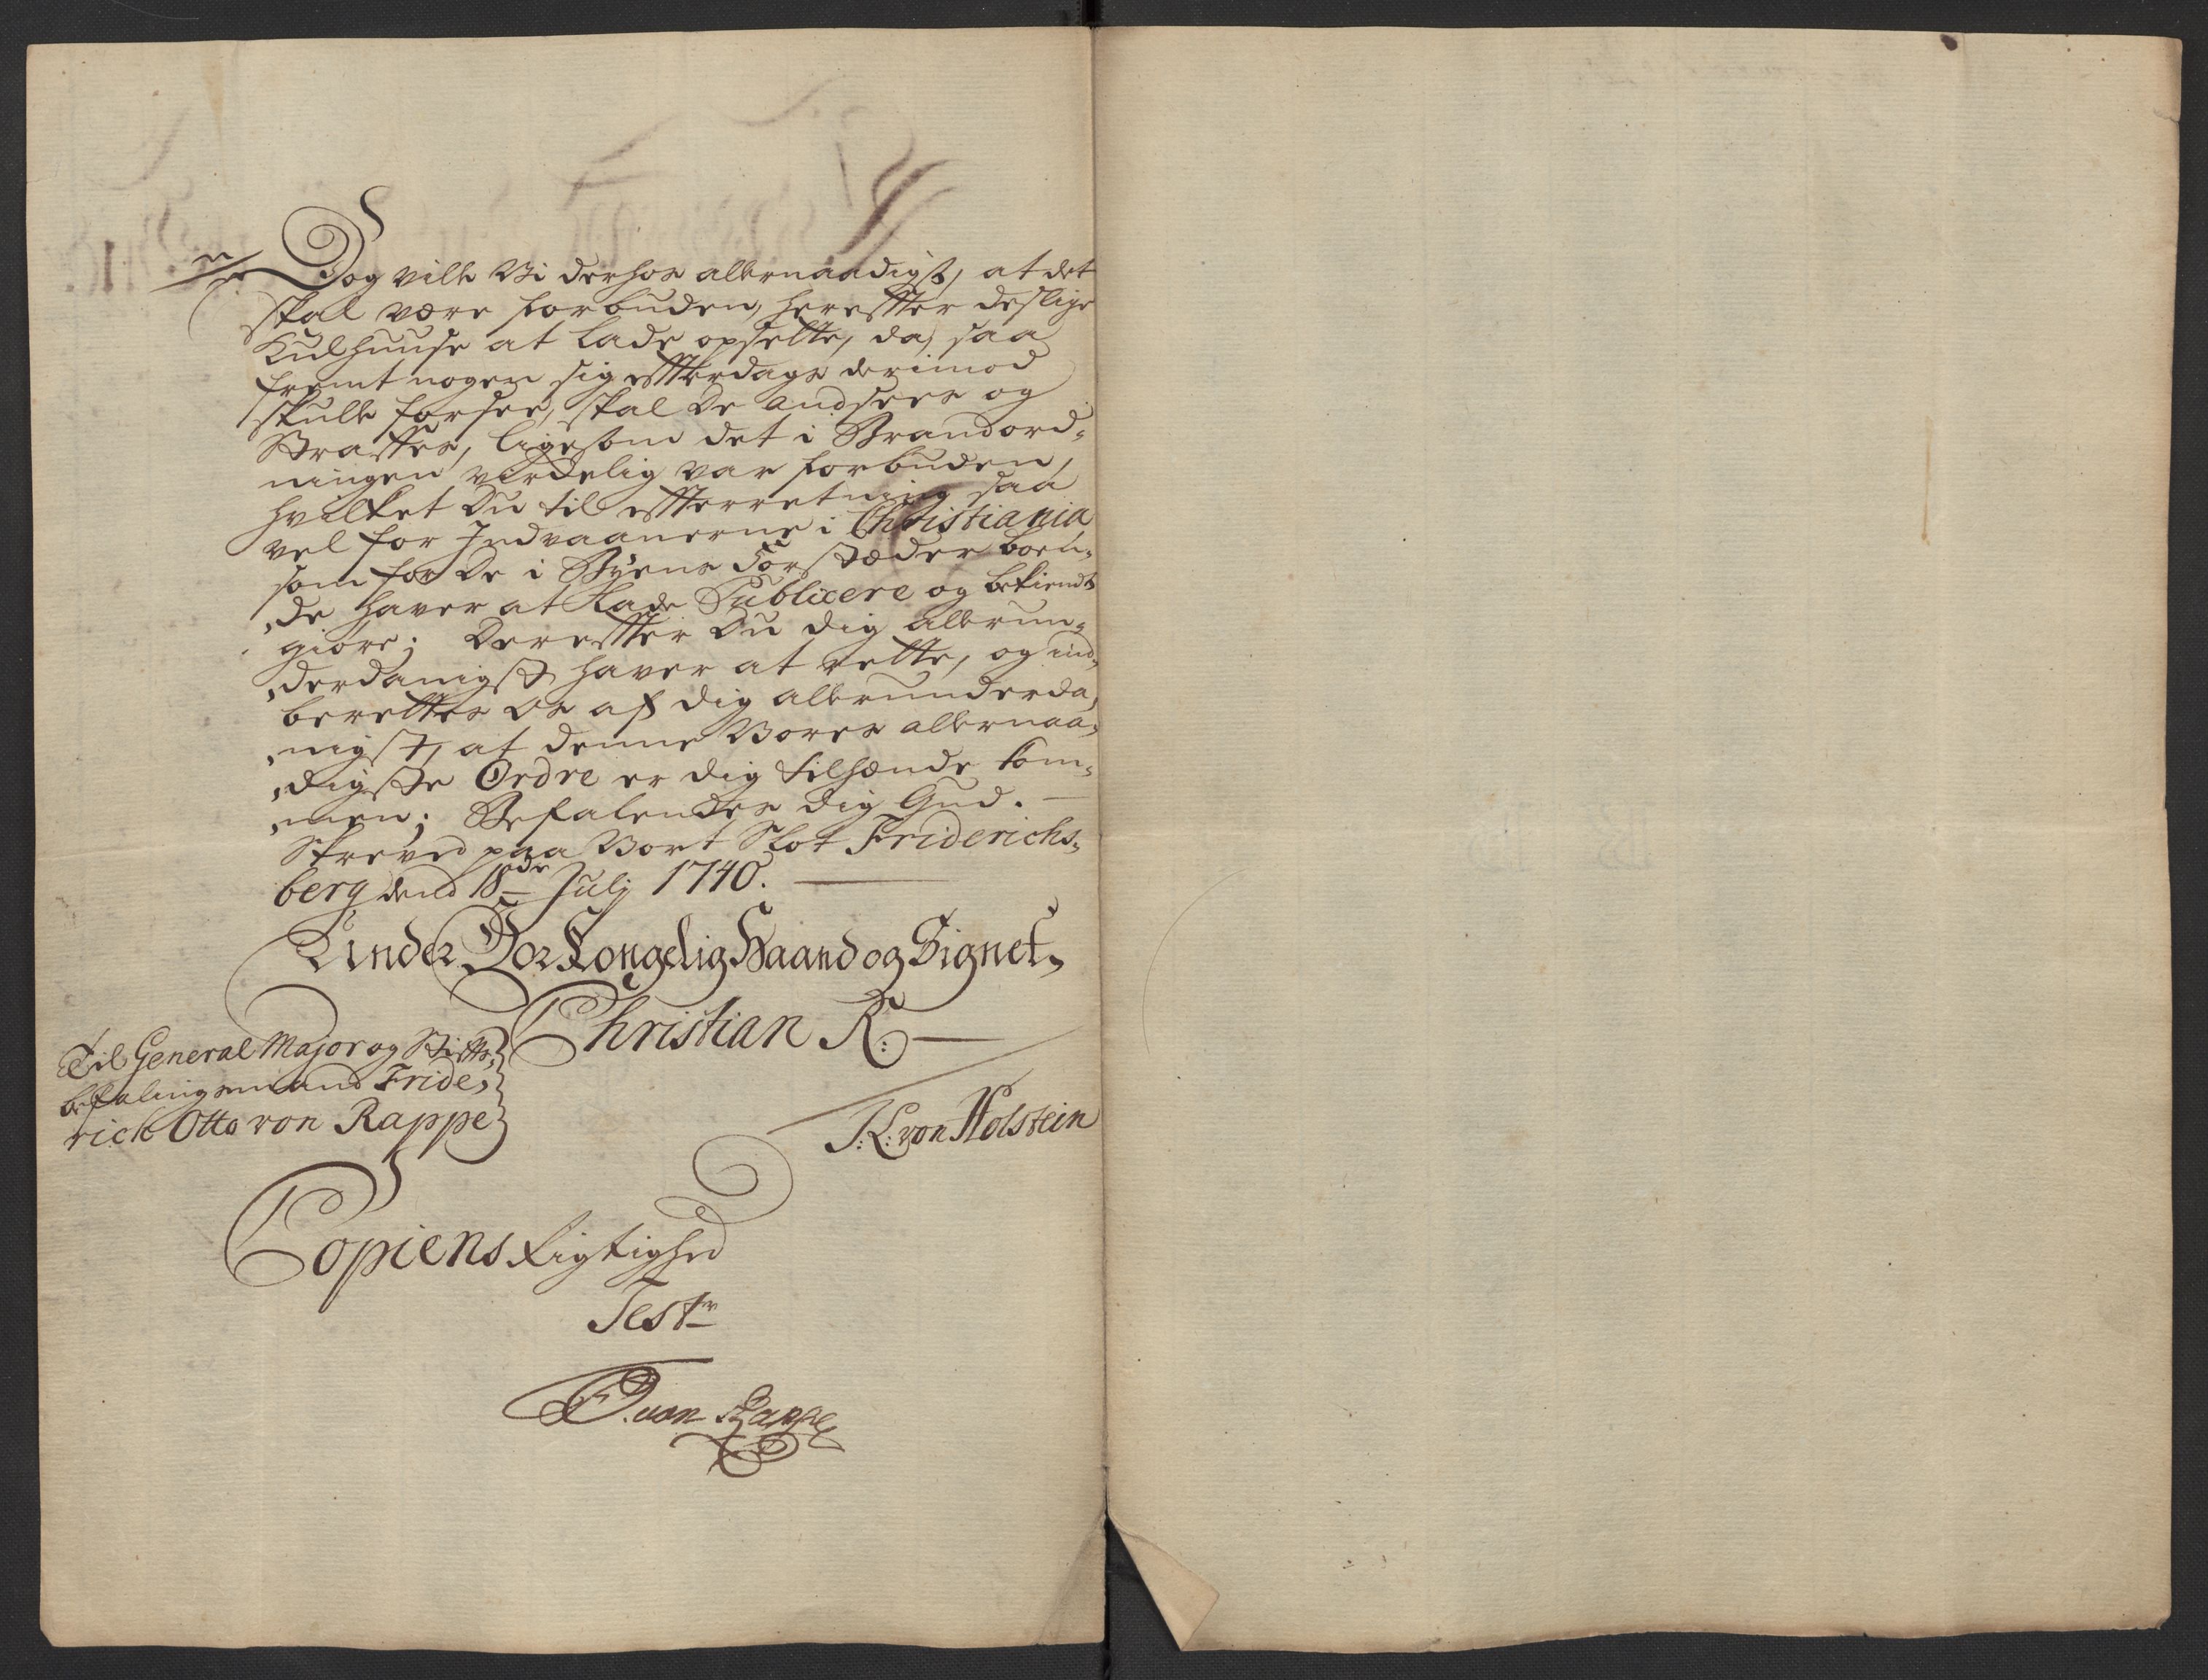 Dog ville Vi derhos allernaadigst, at det
skal være forbuden, herefter deslige
Kulhuuse at lade opsette, da, saa
fremt nogen sig efterdags derimod
skulle forsee, skal De andsees og
Straffes, ligesom det i Brandord-
ningen virkelig var forbuden,
hvilket Du til efterretning saa
vel for Indvaanerne i Christiania
som for De i Byens Forstæder boen-
de haver at Lade Publicere og bekiendt
giøre; Derefter Du dig allerun-
derdanigst haver at rette, og ind-
berettes Os af dig allerunderda-
nigst, at denne Vores allernaa-
digste Ordre er dig tilhænde kom-
men; Befalendes dig Gud. —
Skreved paa Vort Slot Friderichs-
berg dend 18de Julj 1740. —
Under Vor Kongelig Haand og Signet.
Christian R: —
Til General Major og Stifts-
befalingsmand Fride-
rich Otto von Rappe
J: L: von Holstein
Copiens Rigtighed
Testr
F. O. von Rappe